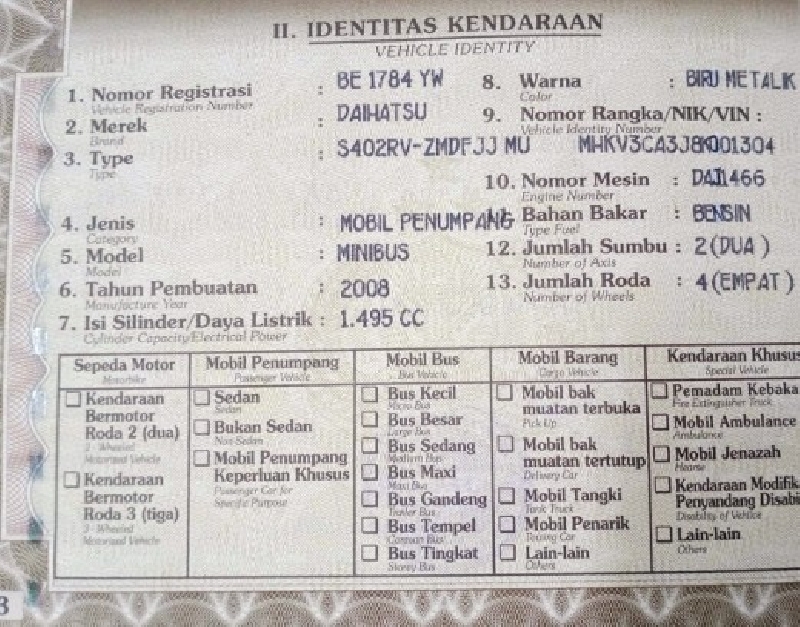 II. IDENTITAS KENDARAAN
VEHICLE IDENTITY
1. Nomor Registrasi : BE 1784 YW
Vehicle Registration Number
2. Merek : DAIHATSU
Brand
3. Type : S402RV-ZMDFJJ MU
Type
4. Jenis : MOBIL PENUMPANG
Category
5. Model : MINIBUS
Model
6. Tahun Pembuatan : 2008
Manufacture Year
7. Isi Silinder/Daya Listrik : 1.495 CC
Cylinder Capacity/Electrical Power
8. Warna : BIRU METALIK
Color
9. Nomor Rangka/NIK/VIN :
Vehicle Identity Number
MHKV3CA3J8K001304
10. Nomor Mesin :
Engine Number
Bahan Bakar : BENSIN
Type Fuel
12. Jumlah Sumbu : 2 (DUA )
Number of Axis
13. Jumlah Roda : 4 (EMPAT )
Number of Wheels
Sepeda Motor
Motorbike
Kendaraan
Bermotor
Roda 2 (dua)
2 - Wheeled
Motorized Vehicle
Kendaraan
Bermotor
Roda 3 (tiga)
3 - Wheeled
Motorized Vehicle
Mobil Penumpang
Passenger Vehicle
Sedan
Sedan
Bukan Sedan
Non Sedan
Mobil Penumpang
Keperluan Khusus
Passenger Car for
Specific Purpose
Mobil Bus
Bus Vehicle
Bus Kecil
Micro Bus
Bus Besar
Large Bus
Bus Sedang
Medium Bus
Bus Maxi
Maxi Bus
Bus Gandeng
Trailer Bus
Bus Tempel
Bus
Bus Tingkat
Storey Bus
Mobil Barang
Cargo Vehicle
Mobil bak
muatan terbuka
Pick Up
Mobil bak
muatan tertutup
Delivery Car
Mobil Tangki
Tank Truck
Mobil Penarik
Towing Car
Lain-lain
Others
Kendaraan Khusus
Special Vehicle
Pemadam Kebaka
Fire Extinguisher Truck
Mobil Ambulance
Ambulance
Mobil Jenazah
Hearse
Kendaraan Modifik
Penyandang Disabi
Disability of Vehicle
Lain-lain
Others
3